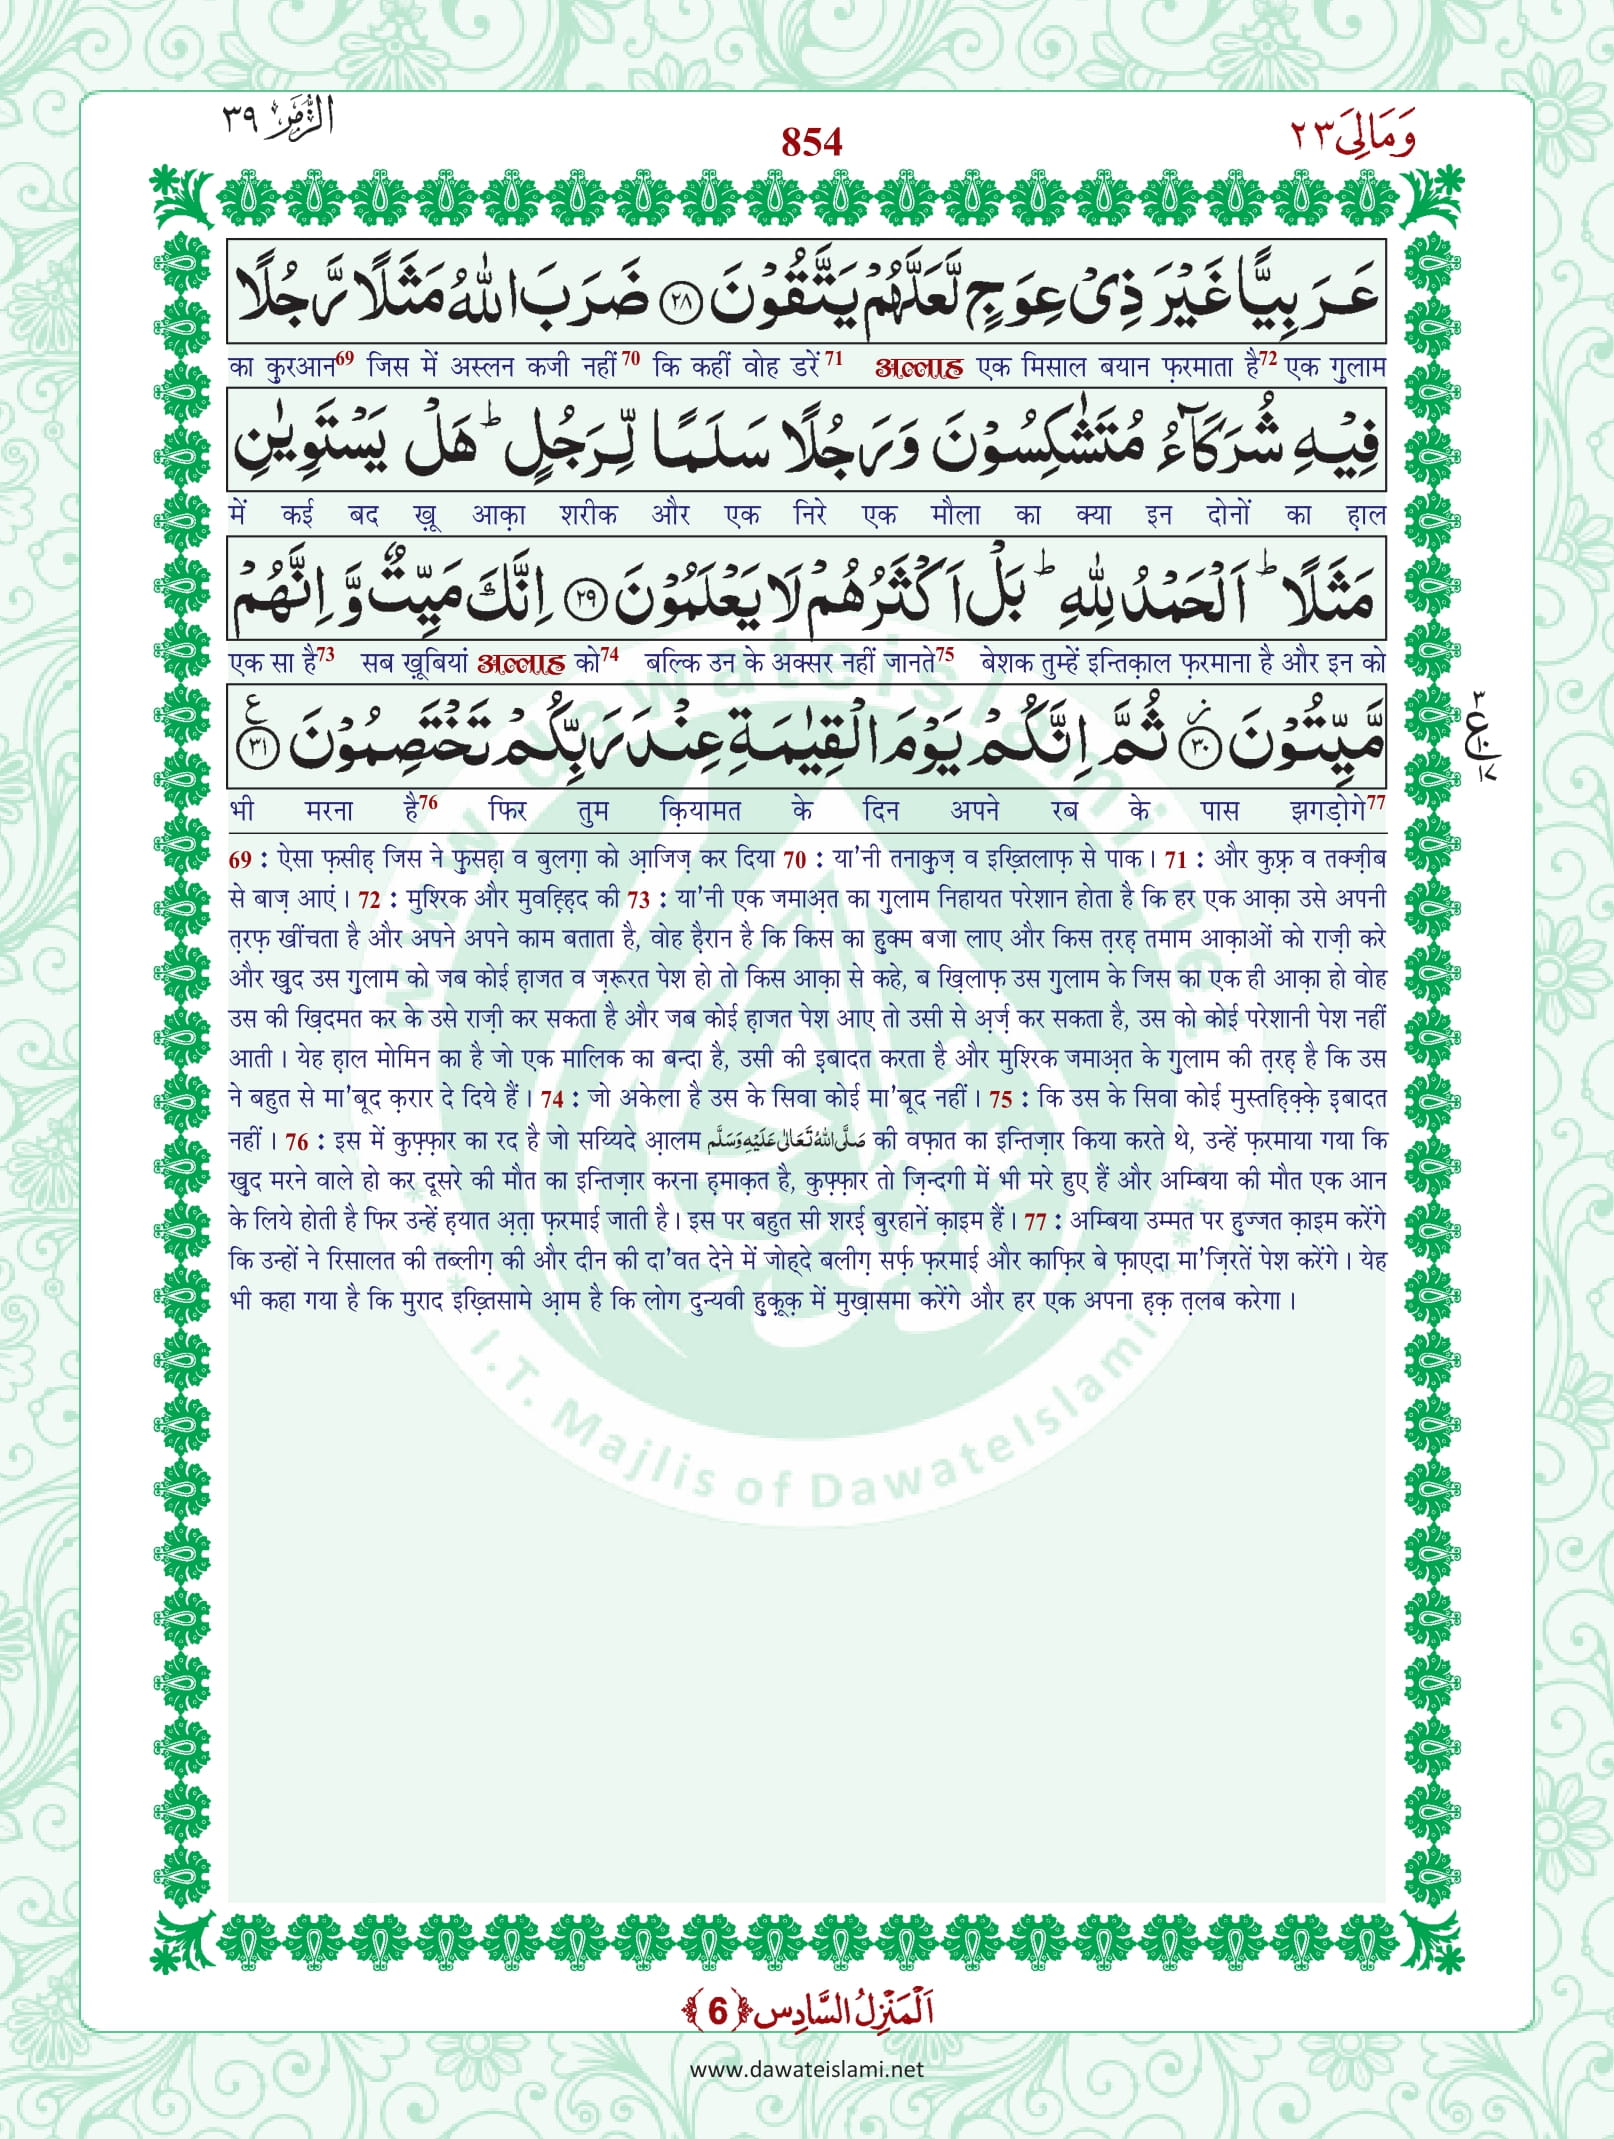 الزُّمَر ٣٩
854
وَمَالِیَ ٢٣
عَرَبِیًّا غَیْرَ ذِیْ عِوَجٍ لَّعَلَّهُمْ یَتَّقُوْنَ ﴿۲۸﴾ ضَرَبَ اللّٰهُ مَثَلًا رَّجُلًا
का क़ुरआन69 जिस में अस्लन कजी नहीं70 कि कहीं वोह डरें71 अल्लाह एक मिसाल बयान फ़रमाता है72 एक ग़ुलाम
فِیْهِ شُرَكَآءُ مُتَشٰكِسُوْنَ وَرَجُلًا سَلَمًا لِّرَجُلٍ ؕ هَلْ یَسْتَوِیٰنِ
में कई बद ख़ू आक़ा शरीक और एक निरे एक मौला का क्या इन दोनों का ह़ाल
مَثَلًا ؕ اَلْحَمْدُ لِلّٰهِ ؕ بَلْ اَكْثَرُهُمْ لَا یَعْلَمُوْنَ ﴿۲۹﴾ اِنَّكَ مَیِّتٌ وَّ اِنَّهُمْ
एक सा है73 सब ख़ूबियां अल्लाह को74 बल्कि उन के अक्सर नहीं जानते75 बेशक तुम्हें इन्तिक़ाल फ़रमाना है और इन को
مَّیِّتُوْنَ ﴿۳۰﴾ ثُمَّ اِنَّكُمْ یَوْمَ الْقِیٰمَةِ عِنْدَ رَبِّكُمْ تَخْتَصِمُوْنَ ﴿۳۱﴾
٣
ع
١٠
١٧
भी मरना है76 फिर तुम क़ियामत के दिन अपने रब के पास झगड़ोगे77
69 : ऐसा फ़सीह़ जिस ने फ़ुसह़ा व बुलग़ा को आ़जिज़ कर दिया 70 : या'नी तनाक़ुज़ व इख़्तिलाफ़ से पाक। 71 : और कुफ़्र व तक्ज़ीब
से बाज़ आएं। 72 : मुश्रिक और मुवह़्ह़िद की 73 : या'नी एक जमाअ़त का ग़ुलाम निहायत परेशान होता है कि हर एक आक़ा उसे अपनी
त़रफ़ खींचता है और अपने अपने काम बताता है, वोह ह़ैरान है कि किस का ह़ुक्म बजा लाए और किस त़रह़ तमाम आक़ाओं को राज़ी करे
और ख़ुद उस ग़ुलाम को जब कोई ह़ाजत व ज़रूरत पेश हो तो किस आक़ा से कहे, ब ख़िलाफ़ उस ग़ुलाम के जिस का एक ही आक़ा हो वोह
उस की ख़िदमत कर के उसे राज़ी कर सकता है और जब कोई ह़ाजत पेश आए तो उसी से अ़र्ज़ कर सकता है, उस को कोई परेशानी पेश नहीं
आती। येह ह़ाल मोमिन का है जो एक मालिक का बन्दा है, उसी की इ़बादत करता है और मुश्रिक जमाअ़त के ग़ुलाम की त़रह़ है कि उस
ने बहुत से मा'बूद क़रार दे दिये हैं। 74 : जो अकेला है उस के सिवा कोई मा'बूद नहीं। 75 : कि उस के सिवा कोई मुस्तह़िक़्क़े इ़बादत
नहीं। 76 : इस में कुफ़्फ़ार का रद है जो सय्यिदे आ़लम صَلَّى اللّٰهُ تَعَالٰى عَلَيْهِ وَسَلَّم की वफ़ात का इन्तिज़ार किया करते थे, उन्हें फ़रमाया गया कि
ख़ुद मरने वाले हो कर दूसरे की मौत का इन्तिज़ार करना ह़माक़त है, कुफ़्फ़ार तो ज़िन्दगी में भी मरे हुए हैं और अम्बिया की मौत एक आन
के लिये होती है फिर उन्हें ह़यात अ़त़ा फ़रमाई जाती है। इस पर बहुत सी शरई बुरहानें क़ाइम हैं। 77 : अम्बिया उम्मत पर ह़ुज्जत क़ाइम करेंगे
कि उन्हों ने रिसालत की तब्लीग़ की और दीन की दा'वत देने में जोह्दे बलीग़ सर्फ़ फ़रमाई और काफ़िर बे फ़ाएदा मा'ज़िरतें पेश करेंगे। येह
भी कहा गया है कि मुराद इख़्तिसामे आ़म है कि लोग दुन्यवी ह़ुक़ूक़ में मुख़ासमा करेंगे और हर एक अपना ह़क़ त़लब करेगा।
www.dawateislami.net
I.T. Majlis of DawateIslami
اَلْمَنْزِلُ السَّادِس ﴿6﴾
www.dawateislami.net